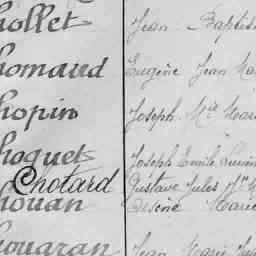 hollet Jean Baptis
homaud Eugène Jean Ma
hopin Joseph Mie Marie
hoquet Joseph Emile
Chotard Gustave Jules
houan Désiré Marie
Jean Marie